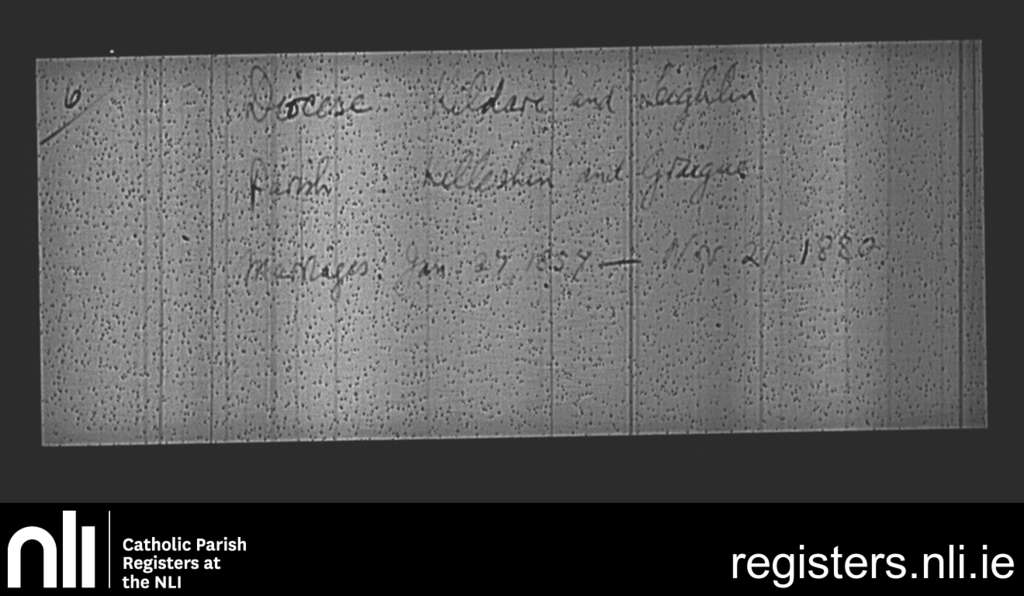 6
Diocese Kildare and Leighlin
Parish Killeshin and Graigue
Marriages Jan 27 1857 — Nov. 21 1880
nli
Catholic Parish
Registers at
the NLI
registers.nli.ie